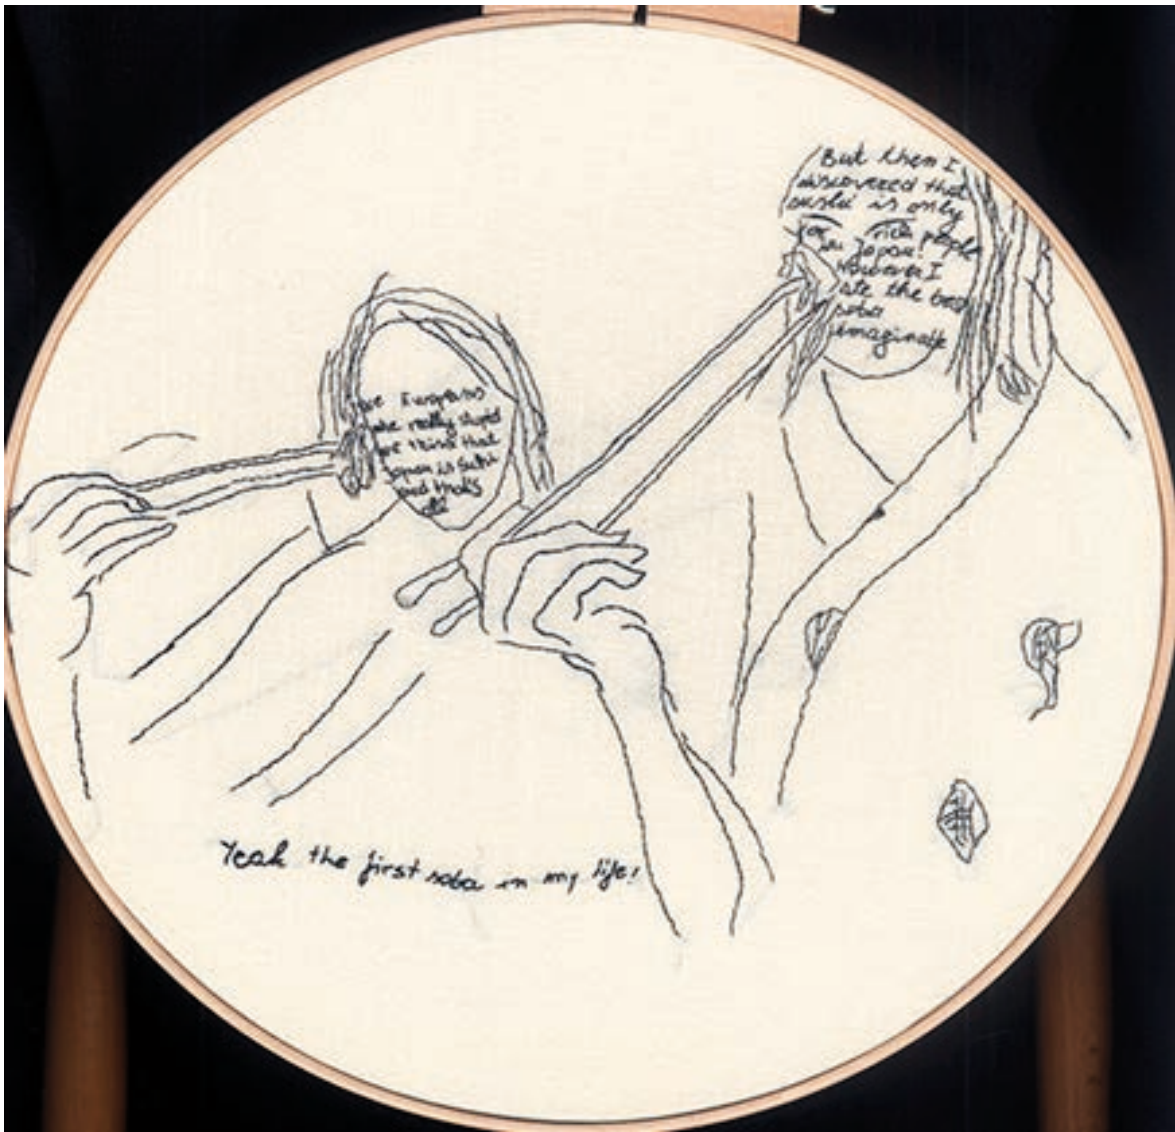 we Europeans
are really stupid
we think that
Japan is sushi
and that's
all
But then I
discovered that
sushi is only
for rich people
in Japan!
However I
ate the best
soba
imaginable
Yeah the first soba in my life!